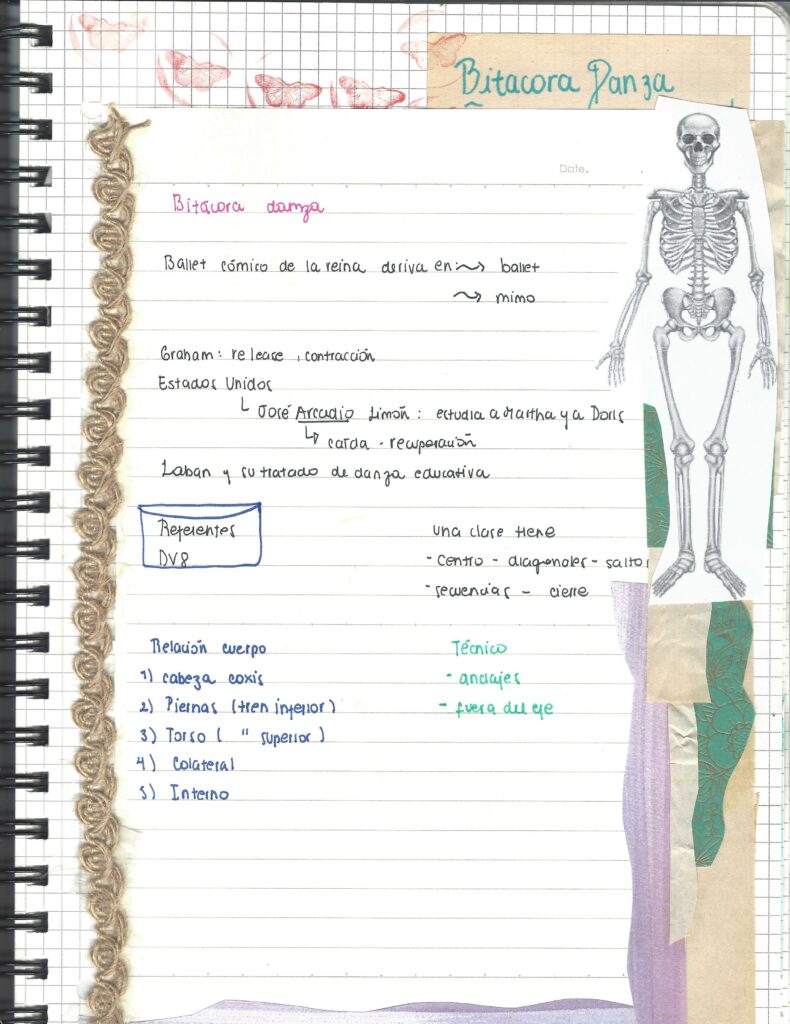 Bitacora Danza
Date.
Bitácora danza
Ballet cómico de la reina deriva en: ~> ballet
~> mimo
Graham: release, contracción
Estados Unidos
↳ José Arcadio Limón: estudia a Martha y a Doris
↳ caída - recuperación
Laban y su tratado de danza educativa
Referentes
DV8
una clase tiene
- centro - diagonales - saltos
- secuencias - cierre
Relación cuerpo
1) cabeza coxis
2) Piernas (tren inferior)
3) Torso ( " superior)
4) Colateral
5) Interno
Técnico
- anclajes
- fuera del eje